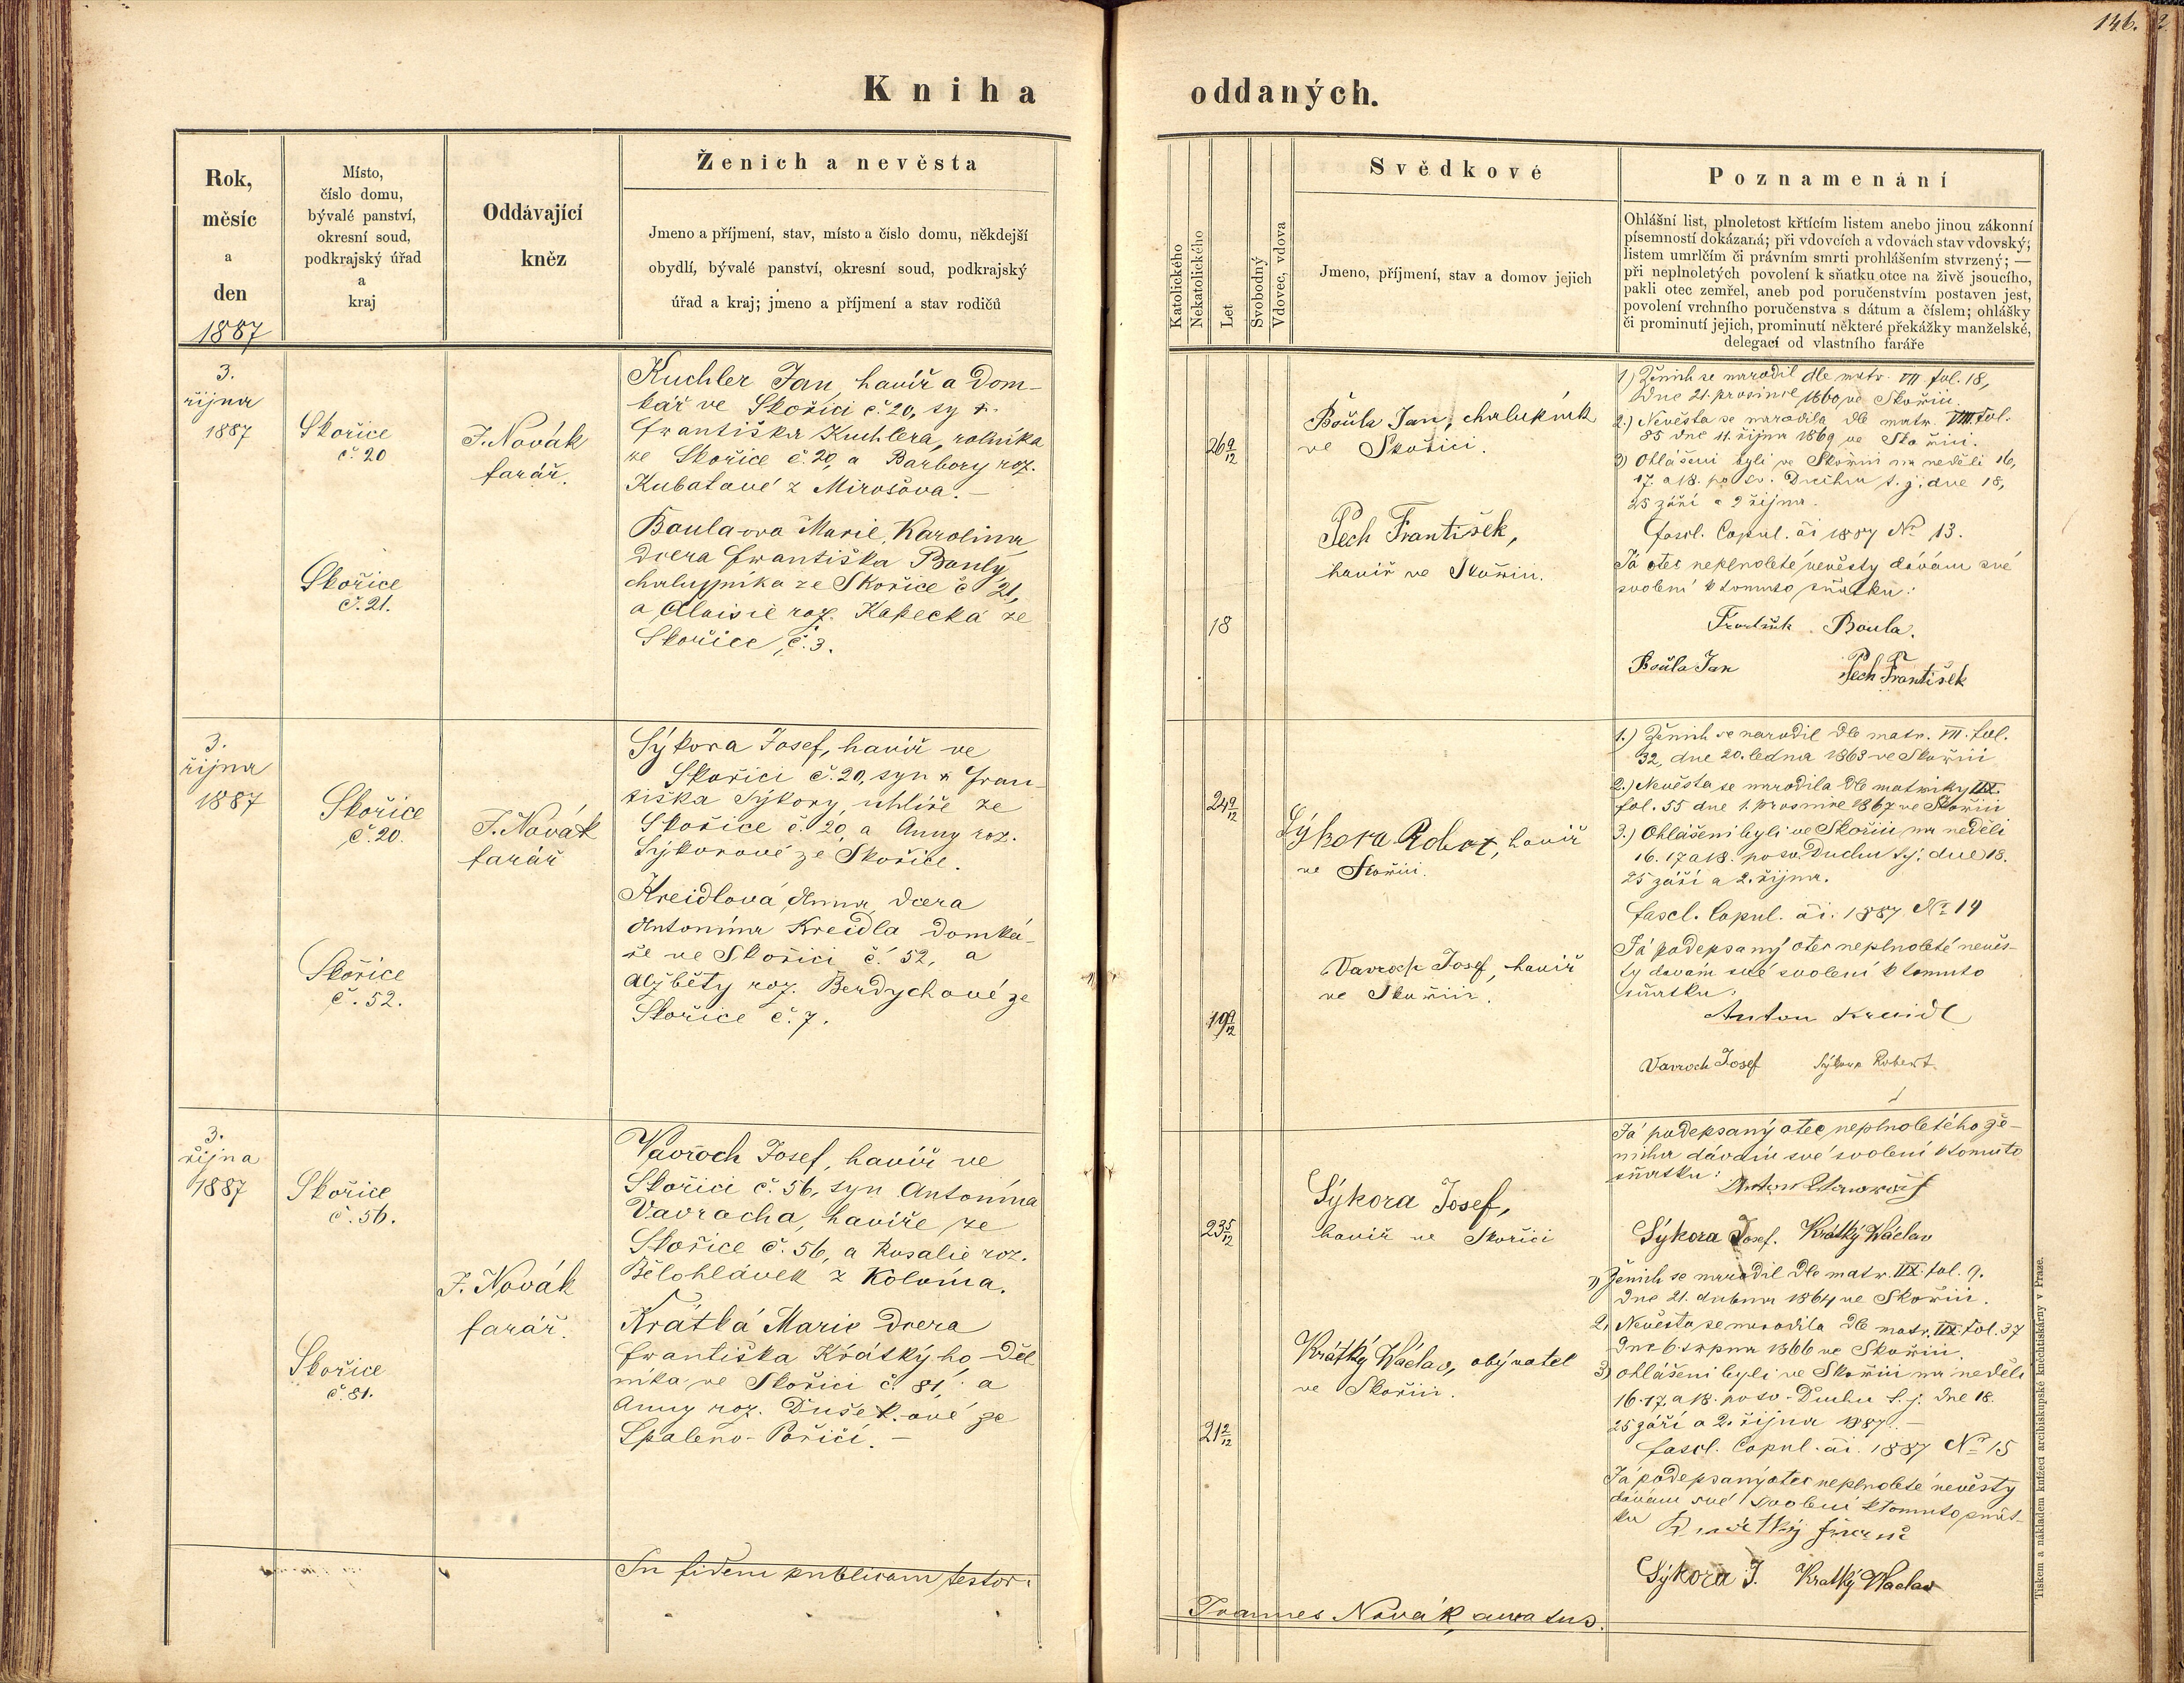 146.
Kniha oddaných.
Rok,
měsíc
a
den
1887
Místo,
číslo domu,
bývalé panství,
okresní soud,
podkrajský úřad
a
kraj
Oddávající
kněz
Ženich a nevěsta
Jmeno a příjmení, stav, místo a číslo domu, někdejší
obydlí, bývalé panství, okresní soud, podkrajský
úřad a kraj; jmeno a příjmení a stav rodičů
Katolického
Nekatolického
Let
Svobodný
Vdovec, vdova
Svědkové
Jmeno, příjmení, stav a domov jejich
Poznamenání
Ohlášní list, plnoletost křtícím listem anebo jinou zákonní
písemností dokázaná; při vdovcích a vdovách stav vdovský;
listem umrlčím či právním smrti prohlášením stvrzený; —
při neplnoletých povolení k sňatku otce na živě jsoucího,
pakli otec zemřel, aneb pod poručenstvím postaven jest,
povolení vrchního poručenstva s dátum a číslem; ohlášky
či prominutí jejich, prominutí některé překážky manželské,
delegací od vlastního faráře
3.
října
1887
Skořice
č. 20
J. Novák
farář.
Kuchler Jan, havíř a dom-
kář ve Skořici č. 20, sy
Františka Kuchlera, rolníka
ze Skořice č. 20, a Barbory roz.
Kubatové z Mirošova. —
Skořice
č. 21.
Boula-ova Marie, Karolina
dcera Františka Bouly,
chalupníka ze Skořice č. 21,
a Aloisie roz. Kapecká ze
Skořice, č. 3.
26 9/12
18
Boula Jan, chalupník
ve Skořici.
Pech František,
havíř ve Skořici.
1) Ženich se narodil dle matr. VII fol. 18,
dne 21. prosince 1860 ve Skořici.
2.) Nevěsta se narodila dle matr. VIII fol.
85 dne 11. října 1869 ve Skořici.
3) Ohlášeni byli ve Skořici na neděli 16,
17. a 18. po sv. Duchu t. j. dne 18,
25 září a 2 října.
fascl. Copul. ai 1887 No 13.
Já otec neplnoleté nevěsty dávám své
svolení k tomuto sňatku:
Boula.
Boula Jan Pech František
3.
října
1887
Skořice
č. 20.
J. Novák
farář
Sýkora Josef, havíř ve
Skořici č. 20, syn Fran-
tiška Sýkory, uhlíře ze
Skořice č. 20, a Anny roz.
Sýkorové ze Skořice.
Skořice
č. 52.
Kreidlová Anna, dcera
Antonína Kreidla domká-
ře ve Skořici č. 52, a
Alžběty roz. Berdychové ze
Skořice č. 7.
24 9/12
19 9/12
Sýkora Robert, havíř
ve Skořici.
Vavroch Josef, havíř
ve Skořici.
1.) Ženich se narodil dle matr. VII. fol.
32, dne 20. ledna 1863 ve Skořici
2.) Nevěsta se narodila dle matriky IIX.
fol. 55 dne 1. prosince 1867 ve Skořici
3.) Ohlášeni byli ve Skořici na neděli
16. 17 a 18. po sv. Duchu t.j. dne 18.
25 září a 2. října.
fascl. Copul. ai. 1887 No 14
Já podepsaný otec neplnoleté nevěs-
ty dávám své svolení k tomuto
sňatku.
Anton Kreidl
Vavroch Josef Sýkora Robert
3.
října
1887
Skořice
č. 56.
J. Novák
farář.
Vavroch Josef, havíř ve
Skořici č. 56, syn Antonína
Vavrocha, havíře ze
Skořice č. 56, a Rosalie roz.
Bělohlávek z Kolvína.
Skořice
č. 81.
Krátká Marie dcera
Františka Krátkýho děl-
níka ve Skořici č. 81, a
Anny roz. Dušek-ové ze
Spaleno-Poříčí. —
23 5/12
21 2/12
Sýkora Josef,
havíř ve Skořici
Krátký Václav, obyvatel
ve Skořici.
Já podepsaný otec neplnoletého že-
nicha dávám své svolení k tomuto
sňatku:
Sýkora Josef. Krátký Václav
1) Ženich se narodil dle matr. IIX. fol. 9.
dne 21. dubna 1864 ve Skořici.
2) Nevěsta se narodila dle matr. IIX. fol. 37
dne 6. srpna 1866 ve Skořici.
3) Ohlášeni byli ve Skořici na neděli
16. 17. a 18. po sv. Duchu t. j. dne 18.
25 září a 2. října 1887. —
fascl. Copul. ai. 1887 No 15
Já podepsaný otec neplnoleté nevěsty
dávám své svolení k tomuto sňat-
ku
Sýkora J. Kratký Waclav
In fidem publicam testor:
Joannes Novák, curatus.
Tiskem a nákladem knížecí arcibiskupské knihtiskárny v Praze.